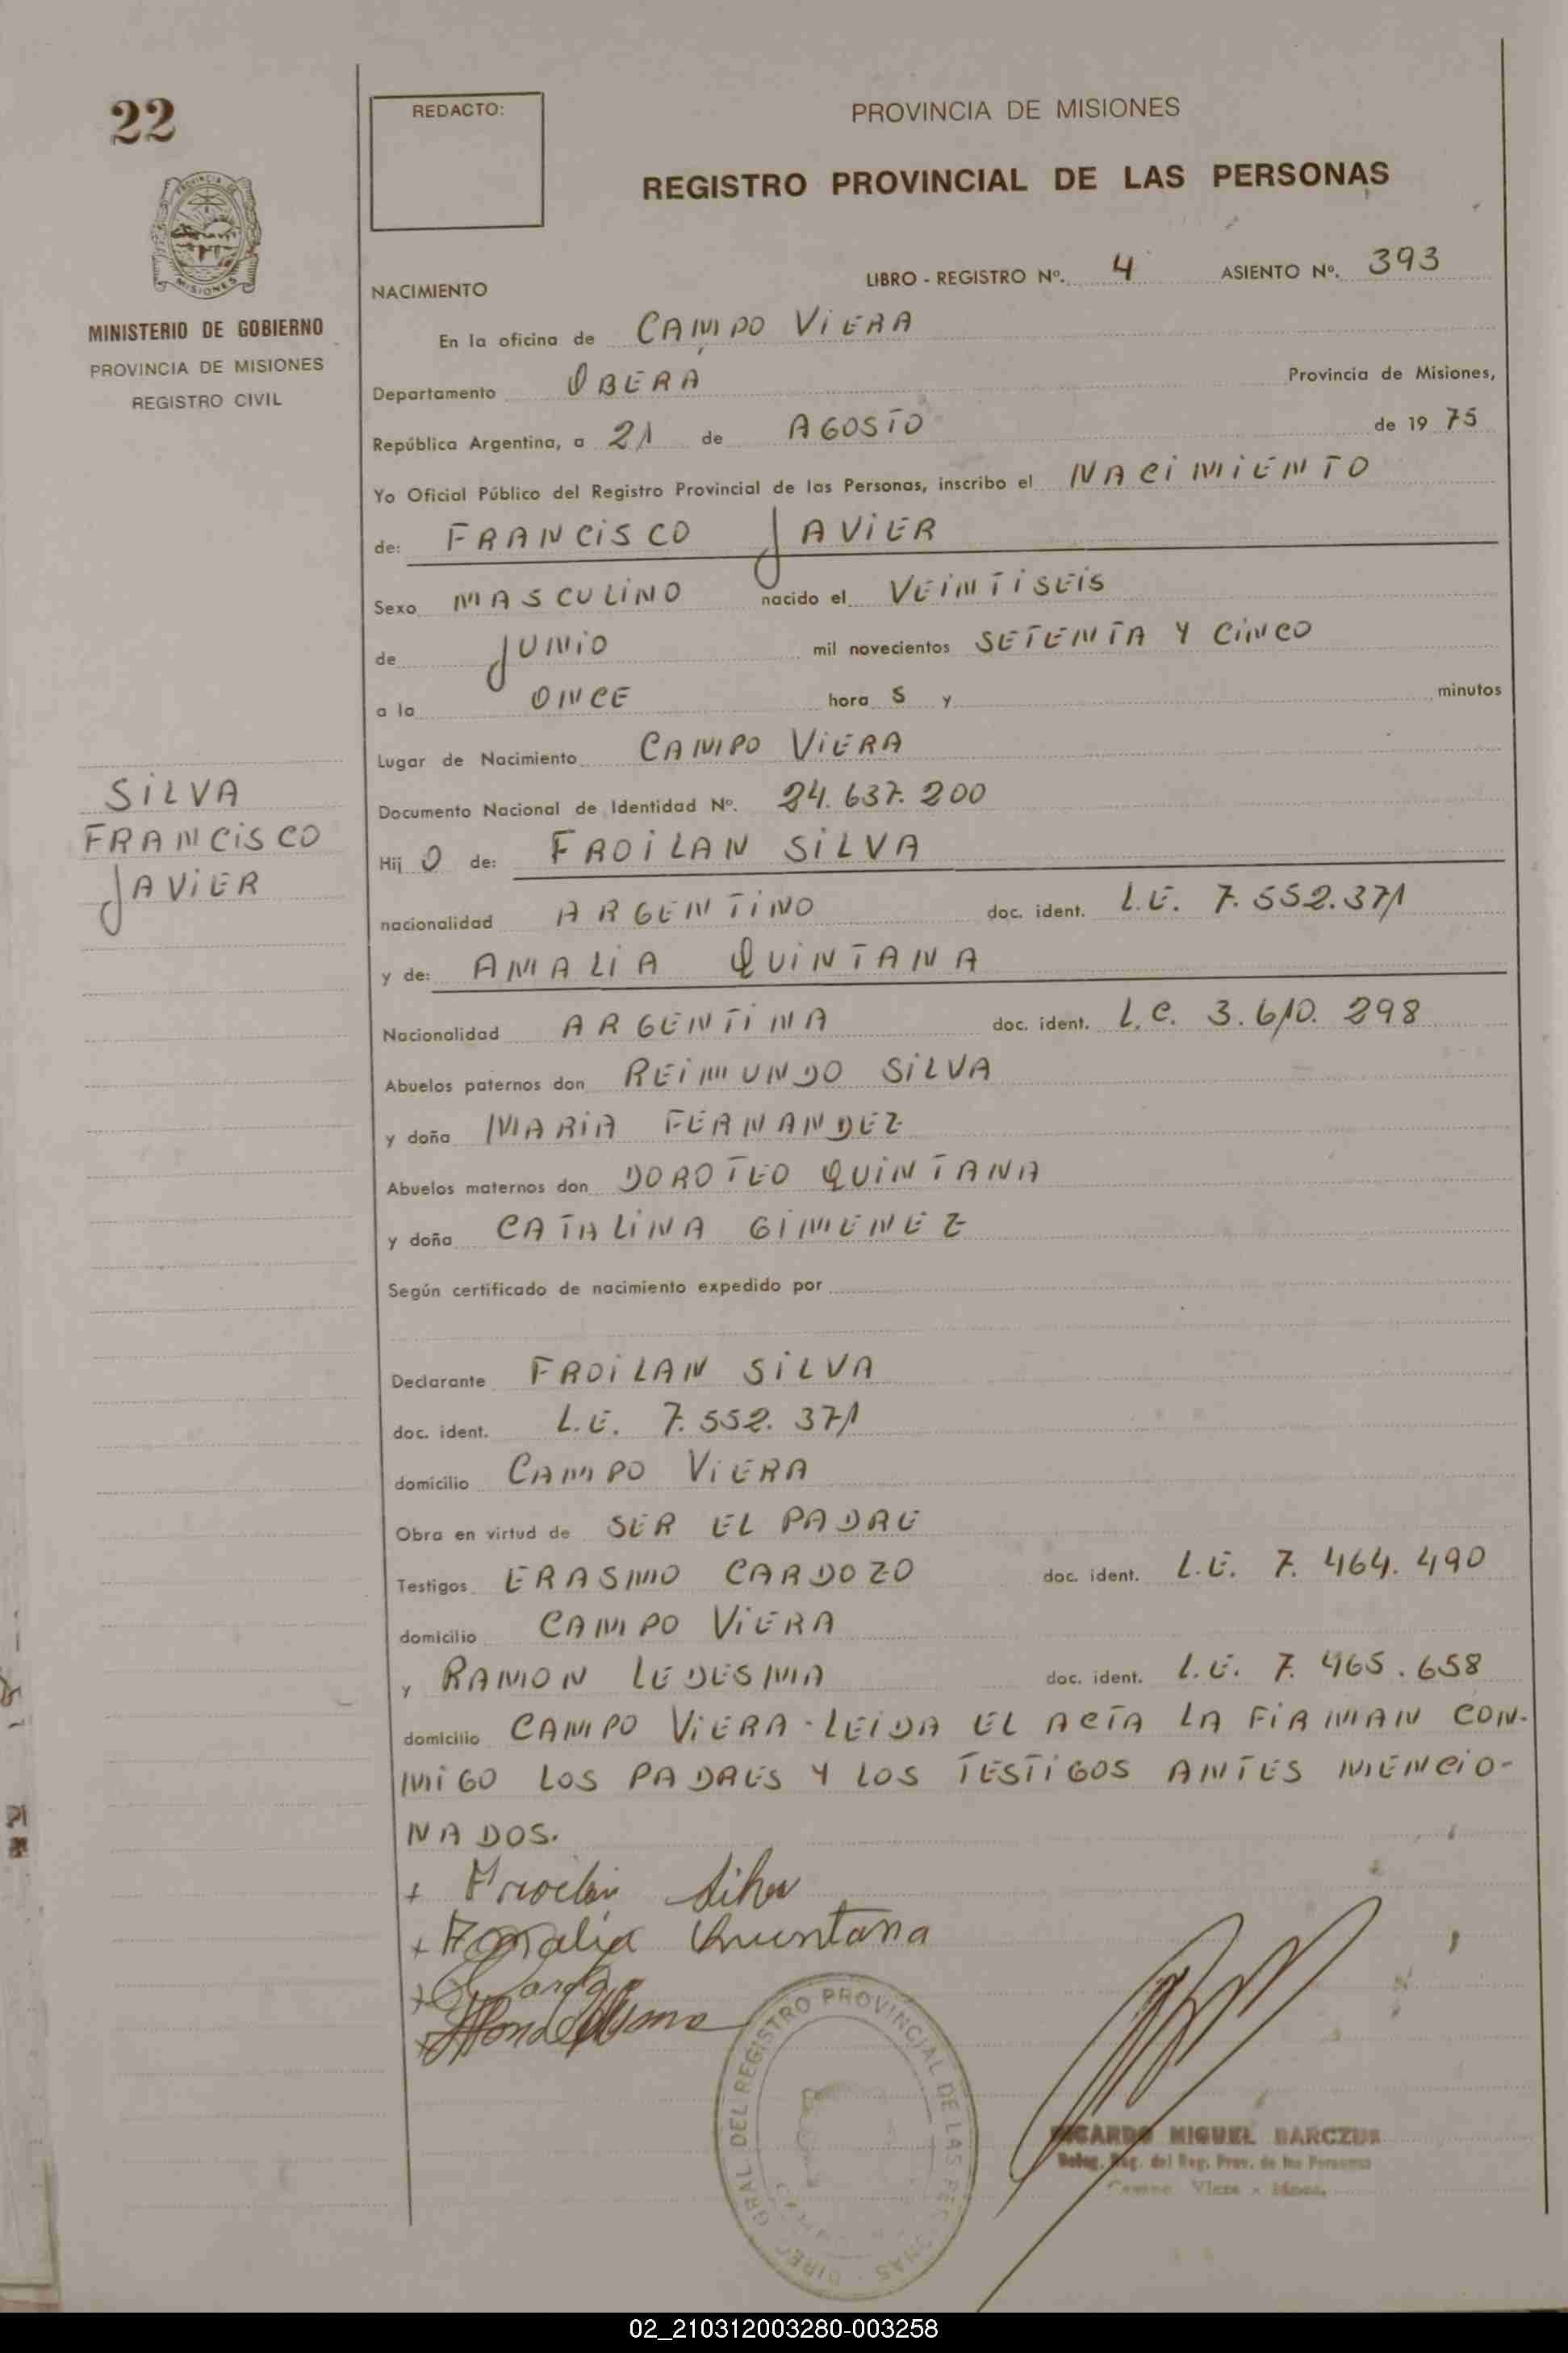 22
REDACTO:
PROVINCIA DE MISIONES
REGISTRO PROVINCIAL DE LAS PERSONAS
PROVINCIA DE
MISIONES
MINISTERIO DE GOBIERNO
PROVINCIA DE MISIONES
REGISTRO CIVIL
NACIMIENTO LIBRO - REGISTRO Nº. 4 ASIENTO Nº. 393
En la oficina de CAMPO VIERA
Departamento OBERA Provincia de Misiones,
República Argentina, a 21 de AGOSTO de 19 75
Yo Oficial Público del Registro Provincial de las Personas, inscribo el NACIMIENTO
de: FRANCISCO JAVIER
Sexo MASCULINO nacido el VEINTISEIS
de JUNIO mil novecientos SETENTA Y CINCO
a la ONCE hora S y minutos
Lugar de Nacimiento CAMPO VIERA
Documento Nacional de Identidad Nº. 24.637.200
SILVA
FRANCISCO
JAVIER
Hij O de: FROILAN SILVA
nacionalidad ARGENTINO doc. ident. L.E. 7.552.371
y de: AMALIA QUINTANA
Nacionalidad ARGENTINA doc. ident. L.C. 3.610.298
Abuelos paternos don REIMUNDO SILVA
y doña MARIA FERNANDEZ
Abuelos maternos don DOROTEO QUINTANA
y doña CATALINA GIMENEZ
Según certificado de nacimiento expedido por
Declarante FROILAN SILVA
doc. ident. L.E. 7.552.371
domicilio CAMPO VIERA
Obra en virtud de SER EL PADRE
Testigos ERASMO CARDOZO doc. ident. L.E. 7.464.490
domicilio CAMPO VIERA
y RAMON LEDESMA doc. ident. L.E. 7.465.658
domicilio CAMPO VIERA - LEIDA EL ACTA LA FIRMAN CON-
MIGO LOS PADRES Y LOS TESTIGOS ANTES MENCIO-
NADOS.
+ Froilan Silva
+ Amalia Quintana
DIREC. GRAL. DEL REGISTRO PROVINCIAL DE LAS PERSONAS
RICARDO MIGUEL BARCZUK
Deleg. Reg. del Reg. Prov. de las Personas
Campo Viera - Mnes.
02_210312003280-003258